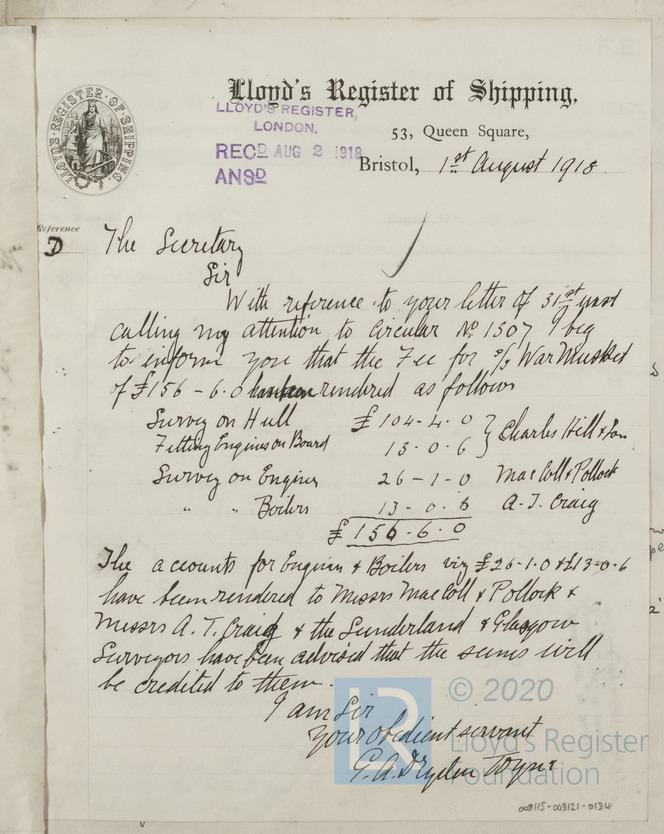 LLOYD'S REGISTER OF SHIPPING
Lloyd's Register of Shipping,
LLOYD'S REGISTER,
LONDON.
53, Queen Square,
RECD AUG 2 1918
ANSD
Bristol, 1st August 1918
Reference
D
The Secretary
Sir
With reference to your letter of 31st
calling my attention to Circular No 1507 I beg
to inform you that the Fee for S/S War Musket
of £156-6.0 has been rendered as follows
Survey on Hull £104-4.0
Fitting Engines on Board 13-0-6 } Charles Hill & Son
Survey on Engines 26-1-0 MacColl & Pollock
" " Boilers 13-0.6 A. T. Craig
£156.6.0
The accounts for Engines & Boilers viz £26-1.0 & £13-0.6
have been rendered to Messrs MacColl & Pollock &
Messrs A. T. Craig & the Sunderland & Glasgow
Surveyors have been advised that the sums will
be credited to them.
I am Sir
Your obedient servant
G. A. Dryden
LR © 2020
Lloyd's Register
Foundation
008115-008121-0134